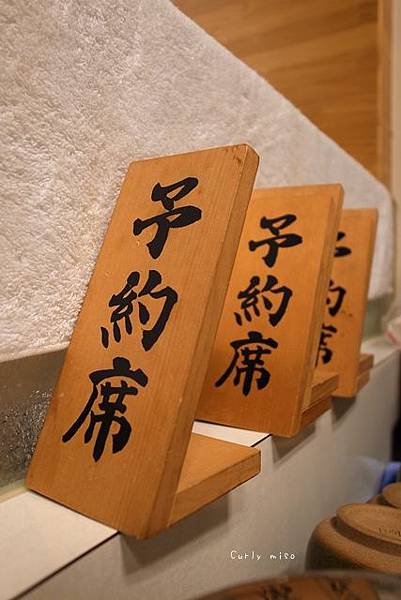 予約席
予約席
予約席
Curly miso